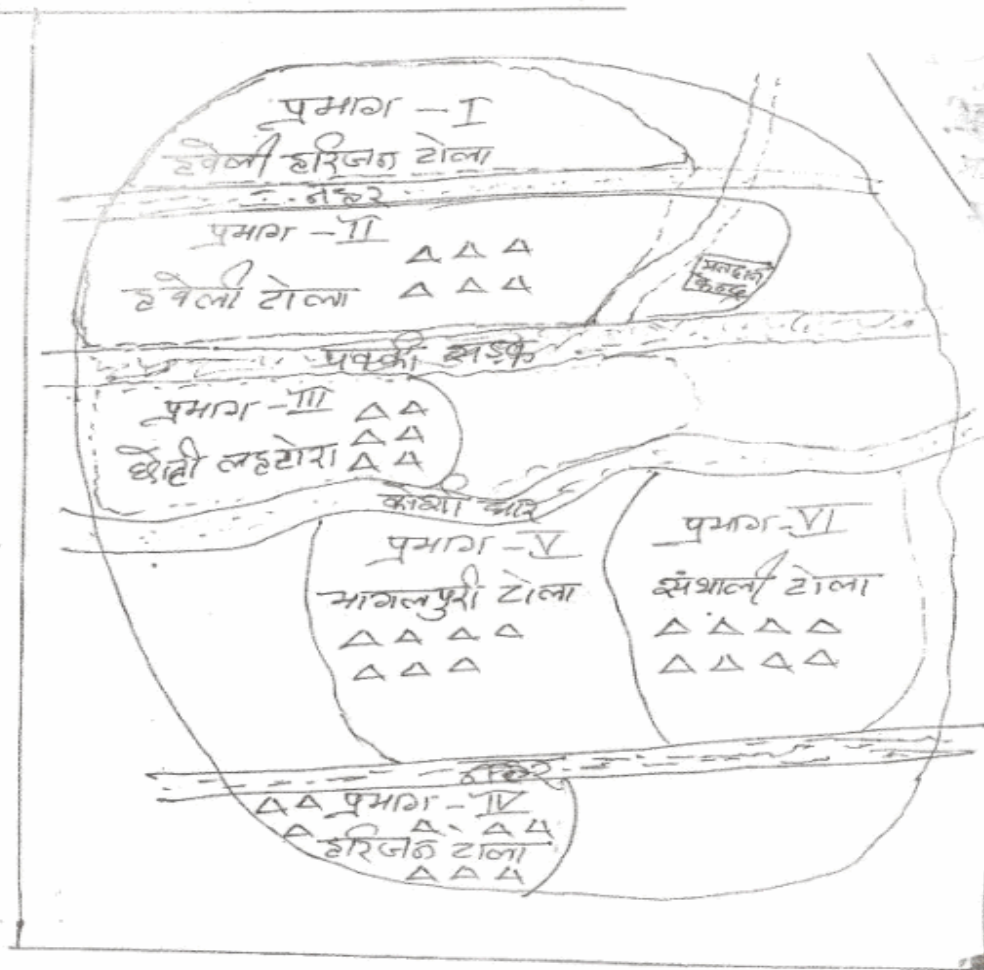 प्रभाग - I
हवेली हरिजन टोला
नहर
प्रभाग - II
हवेली टोला
मतदान
केन्द्र
पक्की सड़क
प्रभाग - III
छोटी लहटोरा
धार
प्रभाग - V
भागलपुरी टोला
प्रभाग - VI
संथाली टोला
नहर
प्रभाग - IV
हरिजन टोला